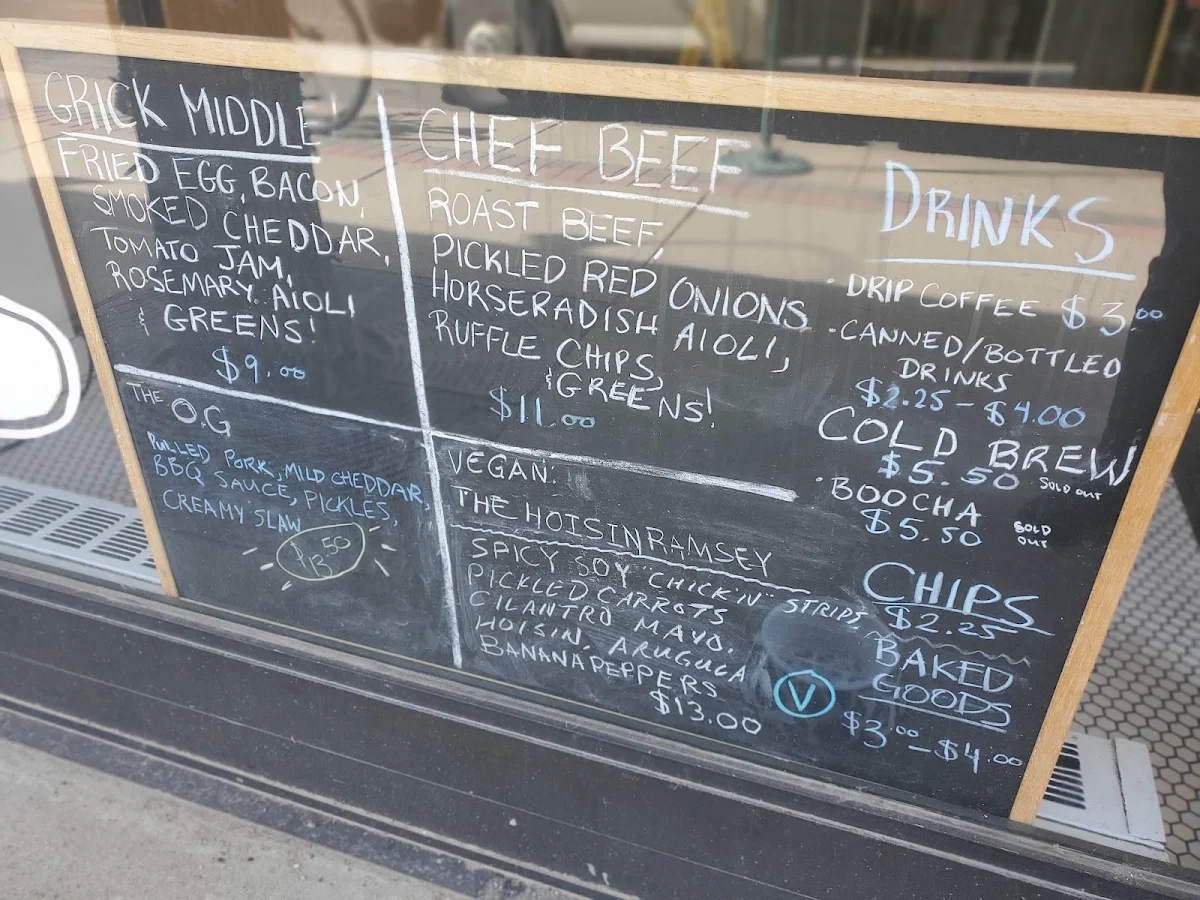 GRICK MIDDLE!
FRIED EGG, BACON,
SMOKED CHEDDAR,
TOMATO JAM,
ROSEMARY AIOLI
& GREENS!
$9.00
THE O.G
PULLED PORK, MILD CHEDDAR,
BBQ SAUCE, PICKLES,
CREAMY SLAW
$13.50
CHEF BEEF
ROAST BEEF,
PICKLED RED ONIONS
HORSERADISH AIOLI,
RUFFLE CHIPS,
& GREENS!
$11.00
VEGAN:
THE HOISIN RAMSEY
SPICY SOY "CHICK'N" STRIPS
PICKLED CARROTS
CILANTRO MAYO.
HOISIN, ARUGUGA
BANANA PEPPERS
$13.00
V
DRINKS
· DRIP COFFEE $3.00
· CANNED/BOTTLED
DRINKS
$2.25 - $4.00
COLD BREW
$5.50 SOLD OUT
· BOOCHA
$5.50 SOLD OUT
CHIPS
$2.25
BAKED
GOODS
$3.00 - $4.00